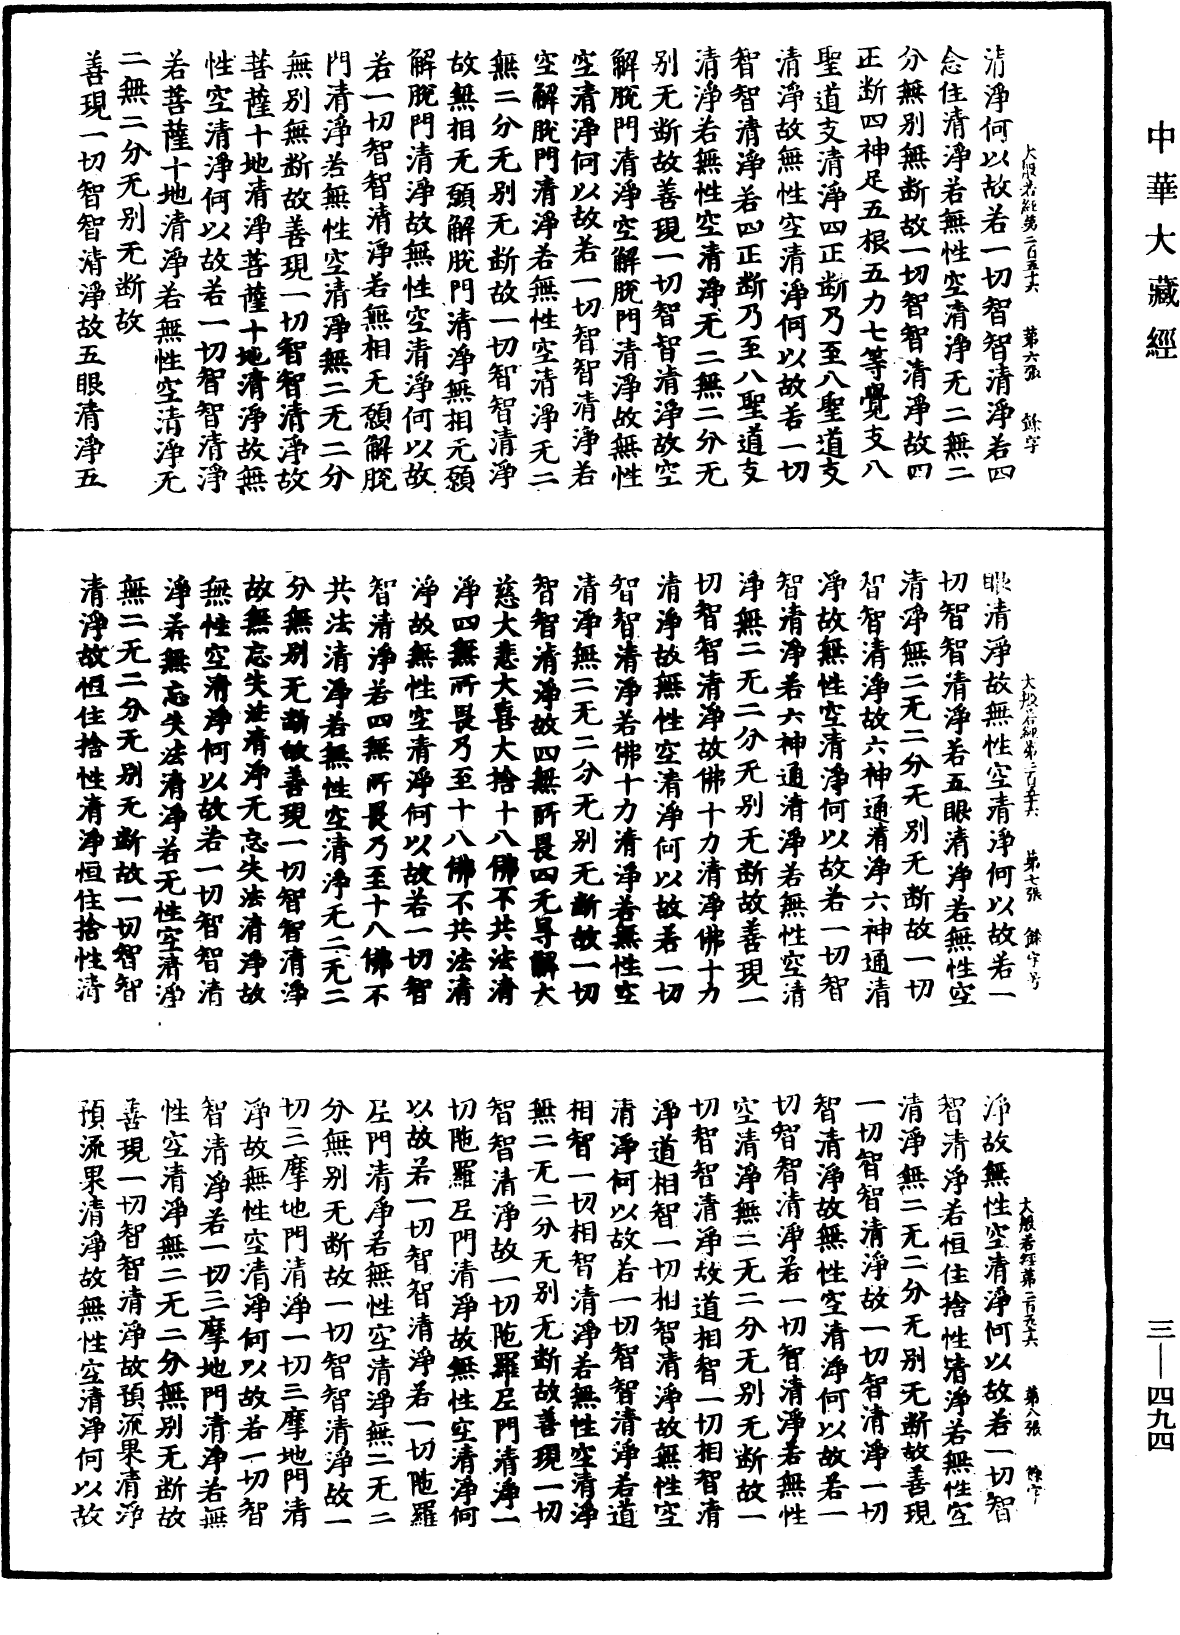 中華大藏經
大般若經第二百五十六 第六張 餘字
清淨何以故若一切智智清淨若四
念住清淨若無性空清淨无二無二
分無别無断故一切智智清淨故四
正断四神足五根五力七等覺支八
聖道支清淨四正断乃至八聖道支
清淨故無性空清淨何以故若一切
智智清淨若四正断乃至八聖道支
清淨若無性空清淨无二無二分无
别无断故善現一切智智清淨故空
解脫門清淨空解脫門清淨故無性
空清淨何以故若一切智智清淨若
空解脫門清淨若無性空清淨无二
無二分无别无断故一切智智清淨
故無相无願解脫門清淨無相无願
解脫門清淨故無性空清淨何以故
若一切智智清淨若無相无願解脫
門清淨若無性空清淨無二无二分
無别無断故善現一切智智清淨故
菩薩十地清淨菩薩十地清淨故無
性空清淨何以故若一切智智清淨
若菩薩十地清淨若無性空清淨无
二無二分无别无断故
善現一切智智清淨故五眼清淨五
大般若經第二百五十六 第七張 餘字号
眼清淨故無性空清淨何以故若一
切智智清淨若五眼清淨若無性空
清淨無二无二分无别无断故一切
智智清淨故六神通清淨六神通清
淨故無性空清淨何以故若一切智
智清淨若六神通清淨若無性空清
淨無二无二分无别无断故善現一
切智智清淨故佛十力清淨佛十力
清淨故無性空清淨何以故若一切
智智清淨若佛十力清淨若無性空
清淨無二无二分无别无断故一切
智智清淨故四無所畏四无导解大
慈大悲大喜大捨十八佛不共法清
淨四無所畏乃至十八佛不共法清
淨故無性空清淨何以故若一切智
智清淨若四無所畏乃至十八佛不
共法清淨若無性空清淨无二无二
分無别无断故善現一切智智清淨
故無忘失法清淨无忘失法清淨故
無性空清淨何以故若一切智智清
淨若無忘失法清淨若无性空清淨
無二无二分无别无断故一切智智
清淨故恒住捨性清淨恒住捨性清
大般若經第二百五十六 第八張 餘字
淨故無性空清淨何以故若一切智
智清淨若恒住捨性清淨若無性空
清淨無二无二分无别无断故善現
一切智智清淨故一切智清淨一切
智清淨故無性空清淨何以故若一
切智智清淨若一切智清淨若無性
空清淨無二无二分无别无断故一
切智智清淨故道相智一切相智清
淨道相智一切相智清淨故無性空
清淨何以故若一切智智清淨若道
相智一切相智清淨若無性空清淨
無二无二分无别无断故善現一切
智智清淨故一切陁羅尼門清淨一
切陁羅尼門清淨故無性空清淨何
以故若一切智智清淨若一切陁羅
尼門清淨若無性空清淨無二无二
分無别无断故一切智智清淨故一
切三摩地門清淨一切三摩地門清
淨故無性空清淨何以故若一切智
智清淨若一切三摩地門清淨若無
性空清淨無二无二分無别无断故
善現一切智智清淨故預流果清淨
預流果清淨故無性空清淨何以故
三—四九四